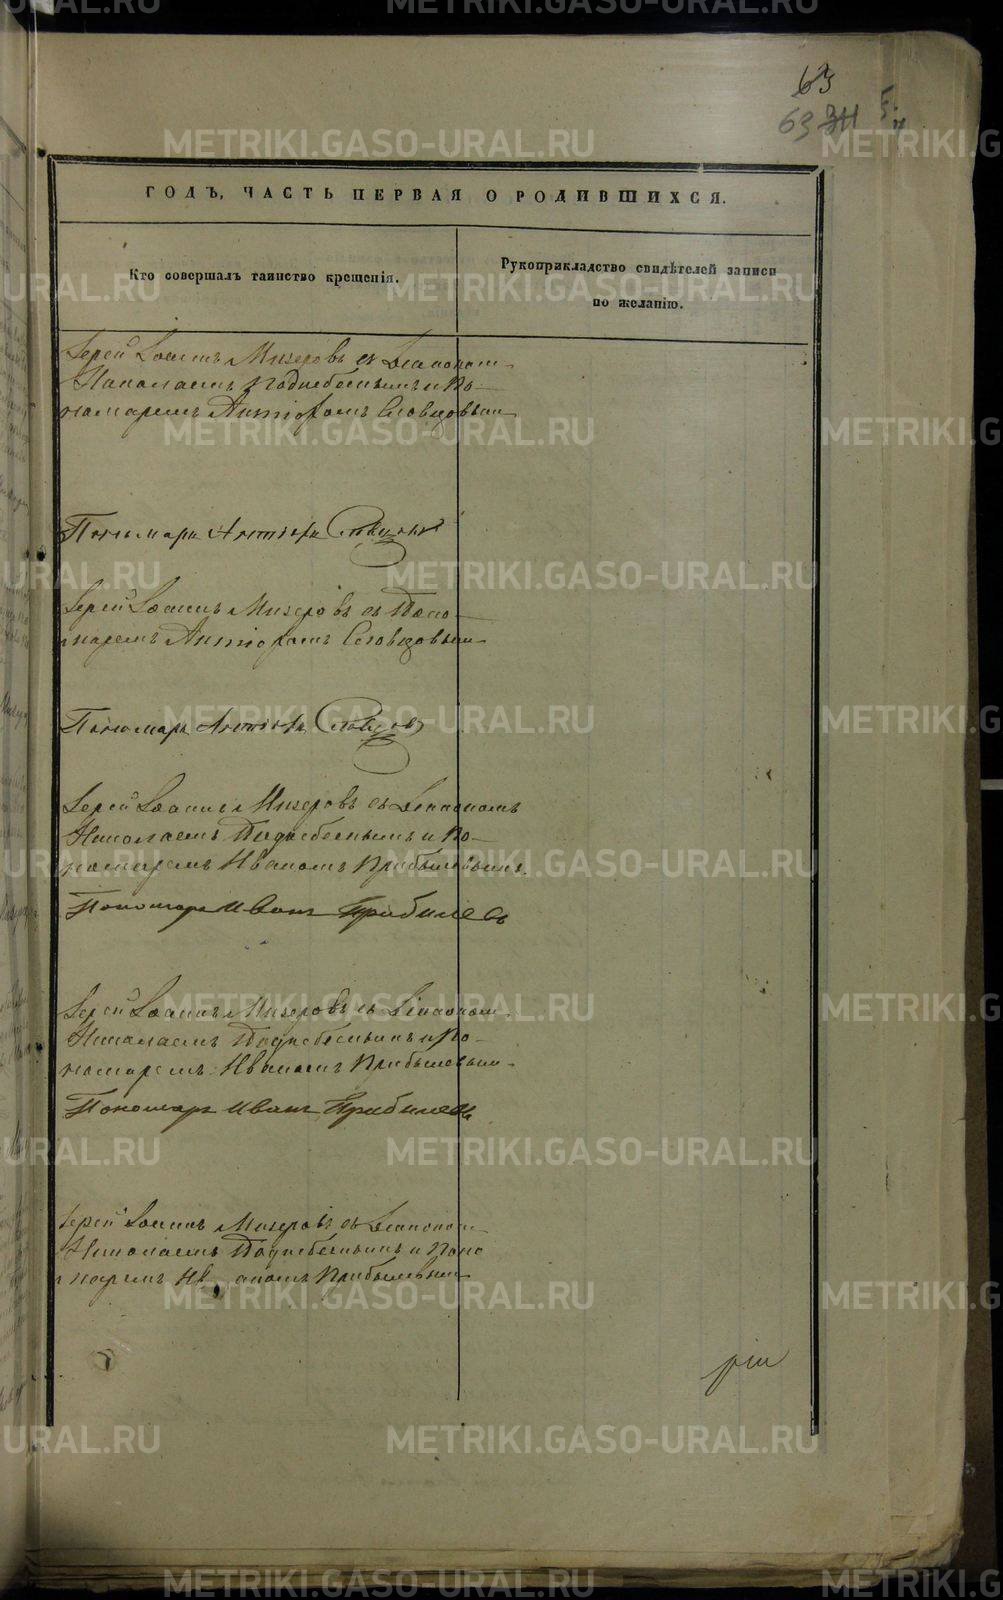 63
63
ГОДЪ, ЧАСТЬ ПЕРВАЯ О РОДИВШИХСЯ.
Кто совершалъ таинство крещенія.
Рукоприкладство свидѣтелей записи
по желанію.
Іерей Іоаннъ Мизеровъ съ Діакономъ
Николаемъ Поднебеснымъ и По-
номаремъ Антіохомъ Словцовымъ
Пономарь Антіохъ Словцовъ
Іерей Іоаннъ Мизеровъ съ Поно-
маремъ Антіохомъ Словцовымъ
Пономарь Антіохъ Словцовъ
Іерей Іоаннъ Мизеровъ съ Діакономъ
Николаемъ Поднебеснымъ и По-
номаремъ Иваномъ Прибылевымъ.
Пономарь Иванъ Прибылевъ
Іерей Іоаннъ Мизеровъ съ Діакономъ
Николаемъ Поднебеснымъ и По-
номаремъ Иваномъ Прибылевымъ
Пономарь Иванъ Прибылевъ
Іерей Іоаннъ Мизеровъ съ Діакономъ
Николаемъ Поднебеснымъ и Поно
маремъ Иваномъ Прибылевымъ
METRIKI.GASO-URAL.RU